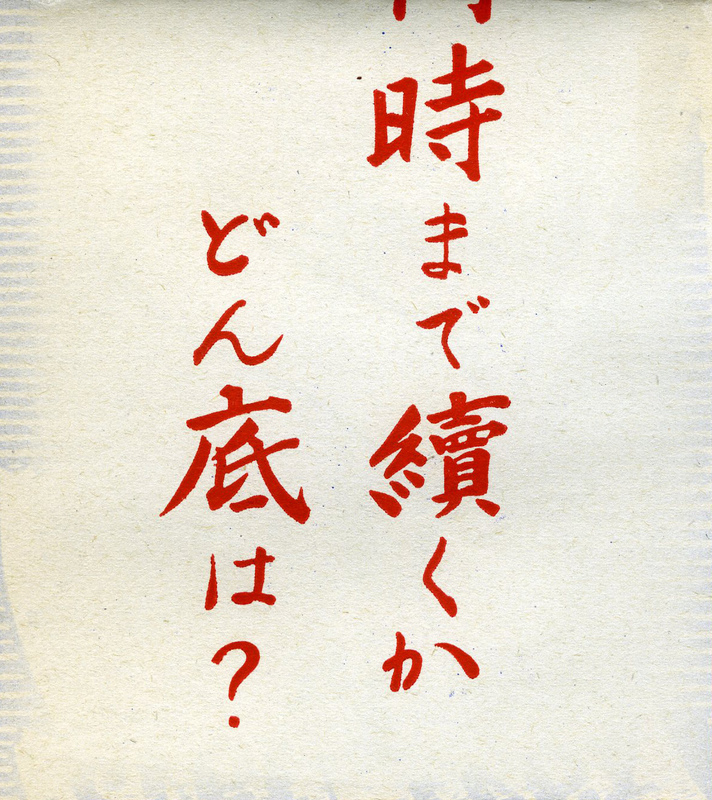 時まで續くか
どん底は？